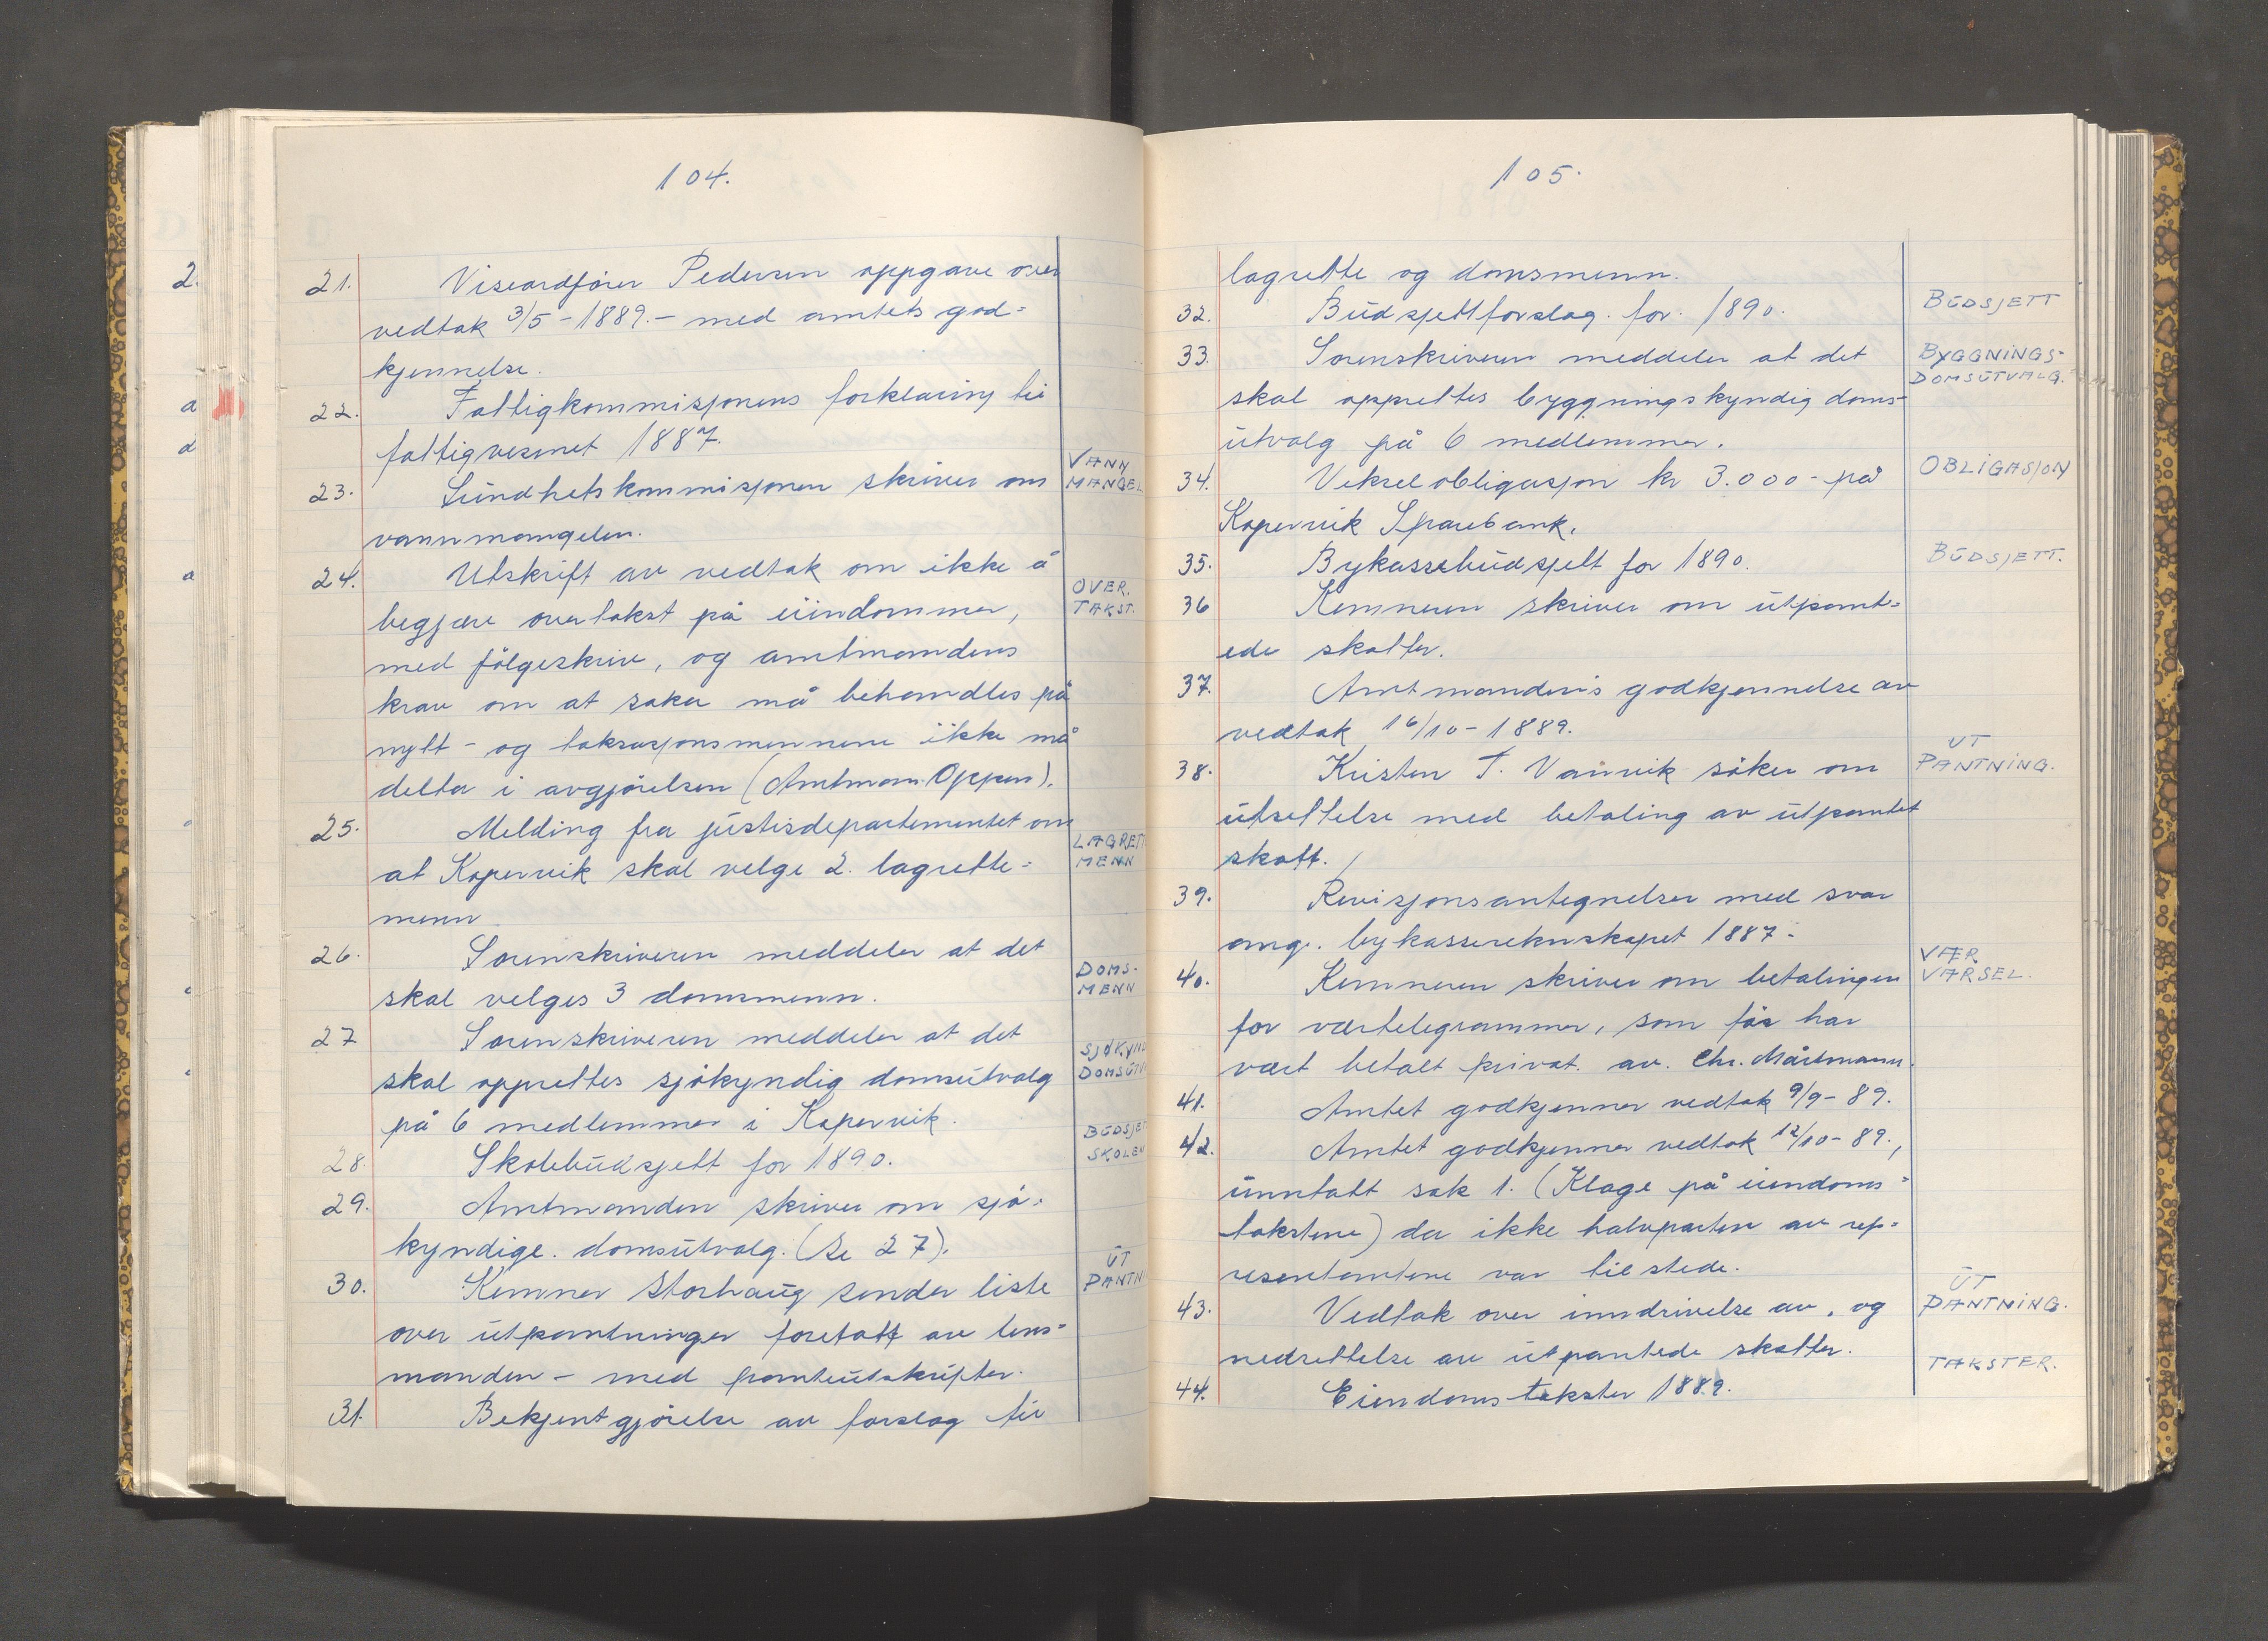 104.
21. Viseordfører Pedersen oppgave over
vedtak 3/5-1889.- med amtets god=
kjennelse.
22. Fattigkommisjonens forklaring til
fattigvesenet 1887.
23. Sundhetskommisjonen skriver om
VANN
MANGEL
vannmangelen.
24. Utskrift av vedtak om ikke å
OVER.
TAKST.
begjære overtakst på eiindommer,
med følgeskriv, og amtmandens
krav om at saken må behandles på
nytt - og taksasjonsmennene ikke må
delta i avgjørelsen (Amtmann Oppen).
25. Melding fra justisdepartementet om
LAGRETT
MENN
at Kopervik skal velge 2. lagrette=
menn
26. Sorenskriveren meddeler at det
DOMS-
MENN
skal velges 3 domsmenn.
27 Sorenskriveren meddeler at det
SJØKYND
DOMSUTV
skal opprettes sjøkyndig domsutvalg
på 6 medlemmer i Kopervik.
BUDSJET
SKOLEN
28. Skolebudsjett for 1890.
29. Amtmanden skriver om sjø=
kyndige. domsutvalg. (Se 27).
30. Kemner Storhaug sender liste
UT
PANTN
over utpantninger foretatt av lens=
manden - med panteutskrifter.
31. Bekjentgjørelse av forslag til
105.
lagrette og domsmenn.
32. Budsjettforslag. for. 1890.
BUDSJETT
33. Sorenskriveren meddeler at det
BYGGNINGS-
DOMSUTVALG.
skal opprettes byggningskyndig doms-
utvalg på 6 medlemmer.
34. Vekselobligasjon kr 3.000- på
OBLIGASJON
Kopervik Sparebank.
35. Bykassebudsjett for 1890.
BUDSJETT.
36 Kemneren skriver om utpant=
ede skatter.
37. Amtmandens godkjennelse av
vedtak 16/10-1889.
38. Kristen T. Vannvik søker om
UT
PANTNING.
utsettelse med betaling av utpantet
skatt.
39. Revisjonsantegnelser med svar
ang. bykasseregnskapet 1887-
40. Kemneren skriver om betalingen
VÆR
VARSEL.
for værtelegrammer, som før har
vært betalt privat. av. Chr. Mårtmann.
41. Amtet godkjenner vedtak 9/9-89.
42. Amtet godkjenner vedtak 12/10-89.,
unntatt sak 1. (Klage på eiendoms=
takstene) da ikke halvparten av rep=
resentantene var tilstede.
43. Vedtak over inndrivelse av, og
UT
PANTNING.
nedsettelse av utpantede skatter.
44. Eiendomstakster 1889.
TAKSTER.